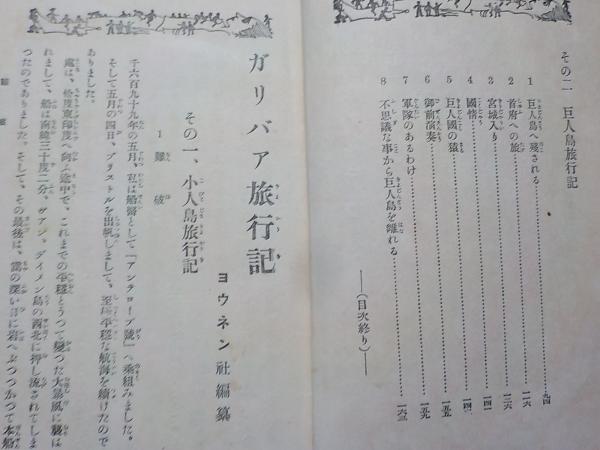 その二 巨人島旅行記
1 巨人島へ残される……九四
2 首府への旅……一一六
3 宮城入り……一二六
4 國情……一四一
5 巨人國の猿……一四二
6 御前演奏……一五五
7 軍隊のあるわけ……一五九
8 不思議な事から巨人島を離れる……一六三
――(目次終り)――
ガリバア旅行記
ヨウネン社編纂
その一、小人島旅行記
1 難破
千六百九十九年の五月、私は船醫として『アンテロープ號』へ乘組みました。
そして五月の四日、ブリストルを出帆しまして、至極平穩な航海を續けたので
ありました。
處は、恰度東印度へ向ふ途中で、これまでの平穩とうつて變つた大暴風に襲は
れまして、船は南緯三十度二分、ヴアン、デイメン島の西北に押し流されてしま
つたのでありました。そして、その最後は、霧の深い日に岩へぶつつかつて本船
難破